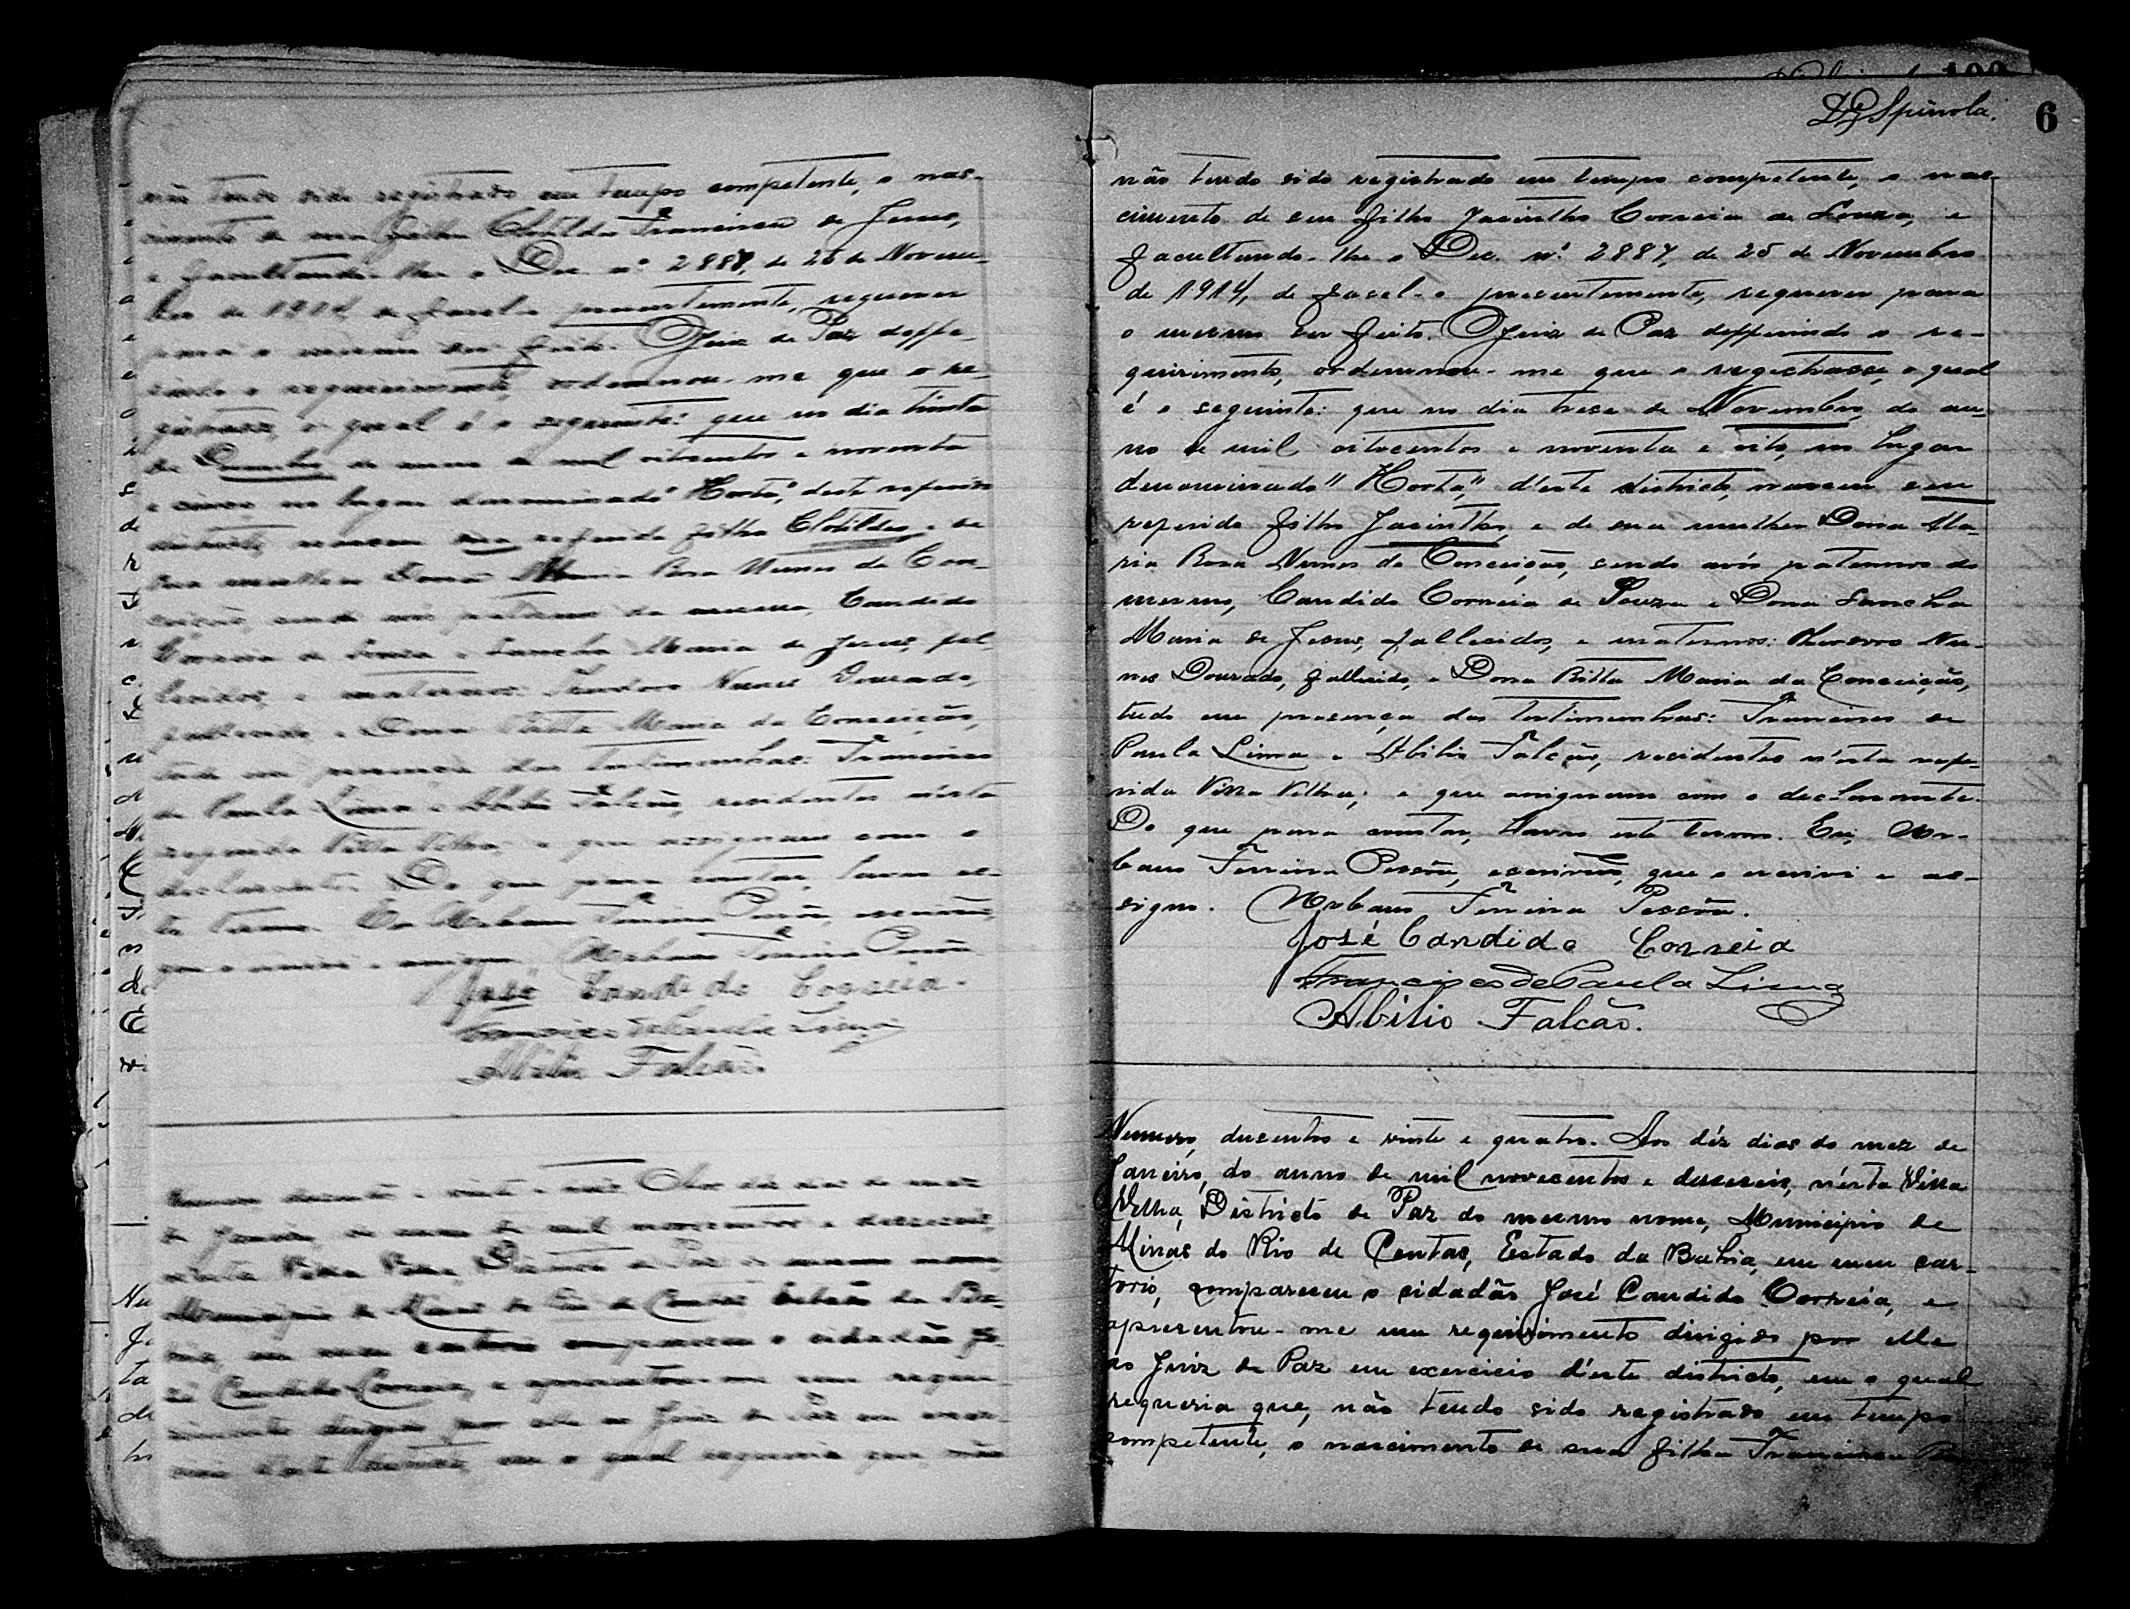 não tendo sido registrado em tempo competente, o nas-
cimento de sua filha Clotildes Francisca de Jesus,
e facultando-lhe o Dec. nº 2887, de 25 de Novem-
bro de 1914, de fazel-o presentemente, requerer
para o mesmo ser feito. O Juiz de Paz deffe-
rindo o requirimento, ordennou-me que o re-
gistrasse, o qual é o seguinte: que no dia trinta
de do anno de mil oitocentos e noventa
e cinco no lugar denominado "Horta", deste referido
districto, nasceu sua referida filha Clotildes, e de
sua mulher Dona Maria Rosa Nunes da Con-
ceição, sendo avós paternos da mesma, Candido
Correia de Souza e Sancha Maria de Jesus, fal-
lecidos, e maternos: Theodoro Nunes Dourado,
fallecido, e Dona Ritta Maria da Conceição,
tudo em presença das testimunhas: Francisco
de Paula Lima e Abilio Falcão, residentes n'esta
referida Villa Velha, e que assignam com o
declarante. Do que para constar, lavro es-
te termo. Eu Urbano Ferreira Pessôa, escrivão
que o escrivi e assigno. Urbano Ferreira Pessôa
José Candido Correia.
Francisco de Paula Lima
Abilio Falcão.
Numero dusentos e vinte e tres. Aos déz dias do mez
de Janeiro, do anno de mil novecentos e deseseis,
n'esta Villa Velha, Districto de Paz do mesmo nome,
Municipio de Minas do Rio de Contas, Estado da Ba-
hia, em meu cartorio compareceu o cidadão Jo-
sé Candido Correia, e apresentou-me um requi-
rimento dirigido por elle ao Juiz de Paz em exer-
cicio d'este districto, em o qual requeria que, não
D G Spinola.
6
não tendo sido registrado em tempo competente, o nas-
cimento de seu filho Jacintho Correia de Souza, e
facultando-lhe o Dec. nº 2887, de 25 de Novembro
de 1914, de fazel-o presentemente, requerer para
o mesmo ser feito. O Juiz de Paz defferindo o re-
quirimento, ordennou-me que o registrasse, o qual
é o seguinte: que no dia trese de Novembro, do an-
no de mil oitocentos e noventa e oito, no lugar
denominado "Horta", d'este districto, nasceu seu
referido filho Jacintho, e de sua mulher Dona Ma-
ria Rosa Nunes da Conceição, sendo avós paternos do
mesmo, Candido Correia de Souza e Dona Sancha
Maria de Jesus, fallecidos, e maternos: Theodoro Nu-
nes Dourado, fallecido, e Dona Ritta Maria da Conceição,
tudo em presença das testimunhas: Francisco de
Paula Lima e Abilio Falcão, residentes n'esta refe-
rida Villa Velha; e que assignam com o declarante.
Do que para constar, lavro este termo. Eu, Ur-
bano Ferreira Pessôa, escrivão, que o escrivi e as-
signo. Urbano Ferreira Pessôa.
José Candido Correia
Francisco de Paula Lima
Abilio Falcão.
Numero, dusentos e vinte e quatro. Aos déz dias do mez de
Janeiro, do anno de mil novecentos e deseseis, n'esta Villa
Velha, Districto de Paz do mesmo nome, Municipio de
Minas do Rio de Contas, Estado da Bahia, em meu car-
torio, compareceu o cidadão José Candido Correia, e
apresentou-me um requirimento dirigido por elle
ao Juiz de Paz em exercicio d'este districto, em o qual
requeria que, não tendo sido registrado em tempo
competente, o nascimento de sua filha Francisca